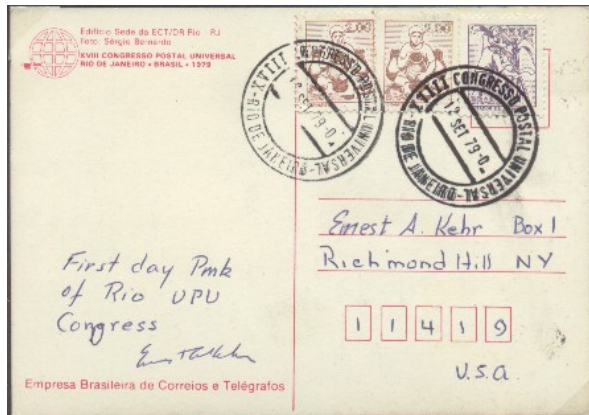 Edifício Sede da ECT/DR Rio - RJ
Foto: Sérgio Bernardo
XVIII CONGRESSO POSTAL UNIVERSAL
RIO DE JANEIRO • BRASIL • 1979
2,00
XVIII CONGRESSO POSTAL UNIVERSAL - RIO DE JANEIRO
SET 79-0
XVIII CONGRESSO POSTAL UNIVERSAL - RIO DE JANEIRO
12 SET 79-0
Ernest A. Kehr Box 1
Richmond Hill NY
11419
U.S.A.
First day Pmk
of Rio UPU
Congress
Empresa Brasileira de Correios e Telégrafos